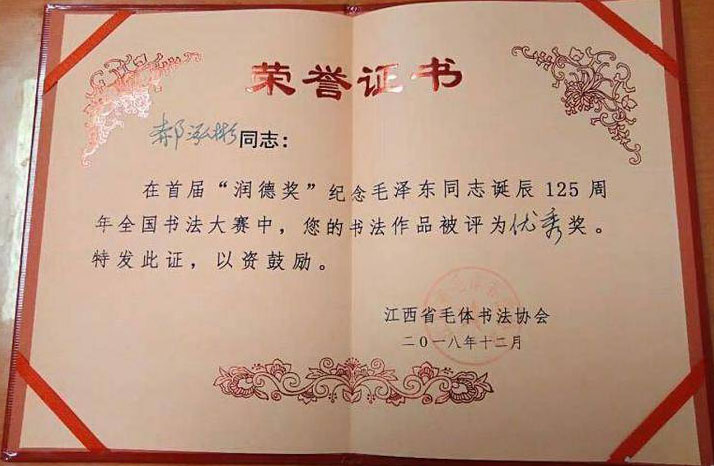 荣誉证书
郝泓彬同志：
在首届“润德奖”纪念毛泽东同志诞辰125周
年全国书法大赛中，您的书法作品被评为优秀奖。
特发此证，以资鼓励。
江西省毛体书法协会
二○一八年十二月